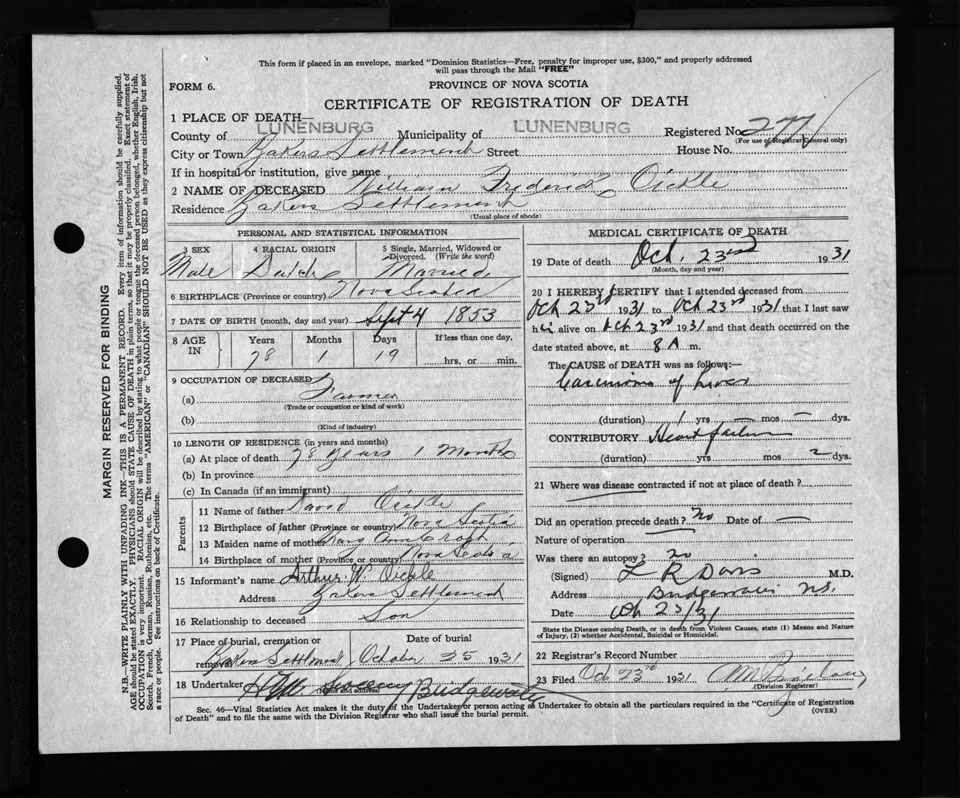 This form if placed in an envelope, marked "Dominion Statistics—Free, penalty for improper use, $300," and properly addressed
will pass through the Mail "FREE"
FORM 6.
PROVINCE OF NOVA SCOTIA
CERTIFICATE OF REGISTRATION OF DEATH
1 PLACE OF DEATH—
County of LUNENBURG Municipality of LUNENBURG Registered No. 2771
(For use of Registrar General only)
City or Town Bakers Settlement Street House No.
If in hospital or institution, give name
2 NAME OF DECEASED William Frederick Oickle
Residence Bakers Settlement
(Usual place of abode)
PERSONAL AND STATISTICAL INFORMATION
3 SEX 4 RACIAL ORIGIN 5 Single, Married, Widowed or
Divorced. (Write the word)
Male Dutch Married
6 BIRTHPLACE (Province or country) Nova Scotia
7 DATE OF BIRTH (month, day and year) Sept 4 1853
8 AGE IN Years Months Days If less than one day,
78 1 19 hrs. or min.
9 OCCUPATION OF DECEASED
(a) Farmer
(Trade or occupation or kind of work)
(b)
(Kind of industry)
10 LENGTH OF RESIDENCE (in years and months)
(a) At place of death 78 years 1 Months
(b) In province
(c) In Canada (if an immigrant)
Parents
11 Name of father David Oickle
12 Birthplace of father (Province or country) Nova Scotia
13 Maiden name of mother Mary Ann Croft
14 Birthplace of mother (Province or country) Nova Scotia
15 Informant's name Arthur W. Oickle
Address Bakers Settlement
16 Relationship to deceased Son
17 Place of burial, cremation or removal Date of burial
Bakers Settlement October 25 1931
18 Undertaker Sweeny Bridgewater
MEDICAL CERTIFICATE OF DEATH
19 Date of death Oct. 23rd 1931
(Month, day and year)
20 I HEREBY CERTIFY that I attended deceased from
Oct 23rd 1931 to Oct 23rd 1931 that I last saw
him alive on Oct 23rd 1931 and that death occurred on the
date stated above, at 8 A m.
The CAUSE OF DEATH was as follows:
Carcinoma of Liver
(duration) 1 yrs — mos — dys.
CONTRIBUTORY Heart failure
(duration) yrs mos 2 dys.
21 Where was disease contracted if not at place of death?
Did an operation precede death? no Date of —
Nature of operation
Was there an autopsy? no
(Signed) L R Davis M.D.
Address Bridgewater N.S.
Date Oct 23/31
State the Disease causing Death, or in death from Violent Causes, state (1) Means and Nature
of Injury, (2) whether Accidental, Suicidal or Homicidal.
22 Registrar's Record Number
23 Filed Oct 23rd 1931
(Division Registrar)
Sec. 46—Vital Statistics Act makes it the duty of the Undertaker or person acting as Undertaker to obtain all the particulars required in the "Certificate of Registration
of Death" and to file the same with the Division Registrar who shall issue the burial permit.
(OVER)
MARGIN RESERVED FOR BINDING
N.B.—WRITE PLAINLY WITH UNFADING INK—THIS IS A PERMANENT RECORD. Every item of information should be carefully supplied.
AGE should be stated EXACTLY. PHYSICIANS should STATE CAUSE OF DEATH in plain terms, so that it may be properly classified. Exact statement of
OCCUPATION is very important. RACIAL ORIGIN will be described by stating to what people or tongue the deceased person belonged, whether English, Irish,
Scotch, French, German, Russian, Ruthenian, etc. The terms "AMERICAN" or "CANADIAN" SHOULD NOT BE USED as they express citizenship but not
a race or people. See instructions on back of Certificate.